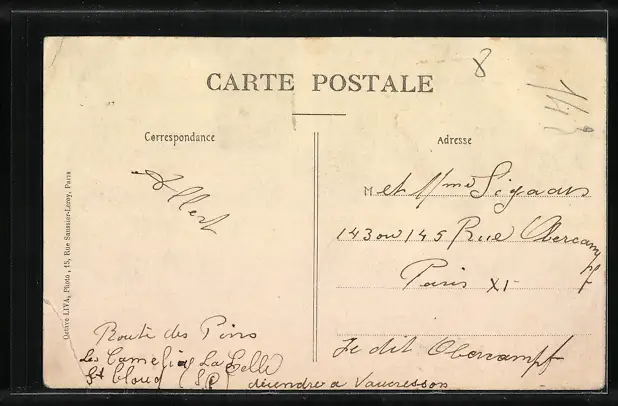 8
CARTE POSTALE
Correspondance
Adresse
Albert
M et Mme Sigaar
143 ou 145 Rue Obercampf
Paris XI
Je dit Obercampf
Route des Pins
Les Camelias La Celle
St Cloud (S
descendre a Vaucresson
Octave LIVA, Photo, 15, Rue Saussier-Leroy, Paris